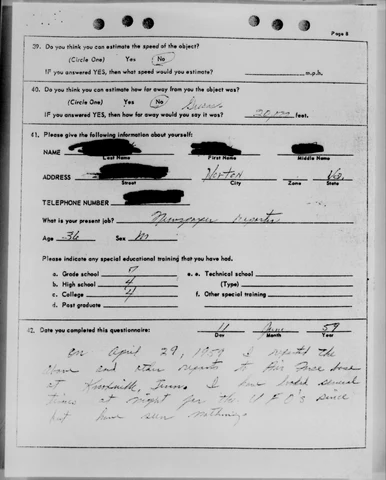 Page 8
39. Do you think you can estimate the speed of the object?
(Circle One) Yes No
IF you answered YES, then what speed would you estimate? m.p.h.
40. Do you think you can estimate how far away from you the object was?
(Circle One) Yes No Guess
IF you answered YES, then how far away would you say it was? feet.
41. Please give the following information about yourself:
NAME
Last Name First Name Middle Name
ADDRESS Norton Va
Street City Zone State
TELEPHONE NUMBER
What is your present job? Newspaper reporter
Age 36 Sex M
Please indicate any special educational training that you have had.
a. Grade school 7 e. e. Technical school
b. High school 4 (Type)
c. College 4 f. Other special training
d. Post graduate
42. Date you completed this questionnaire: 11 June 59
Day Month Year
On April 29, 1959 I reported the
above and other reports to Air Force base
at Knoxville, Tenn. I have looked several
times at night for the UFO's since
but have seen nothing.